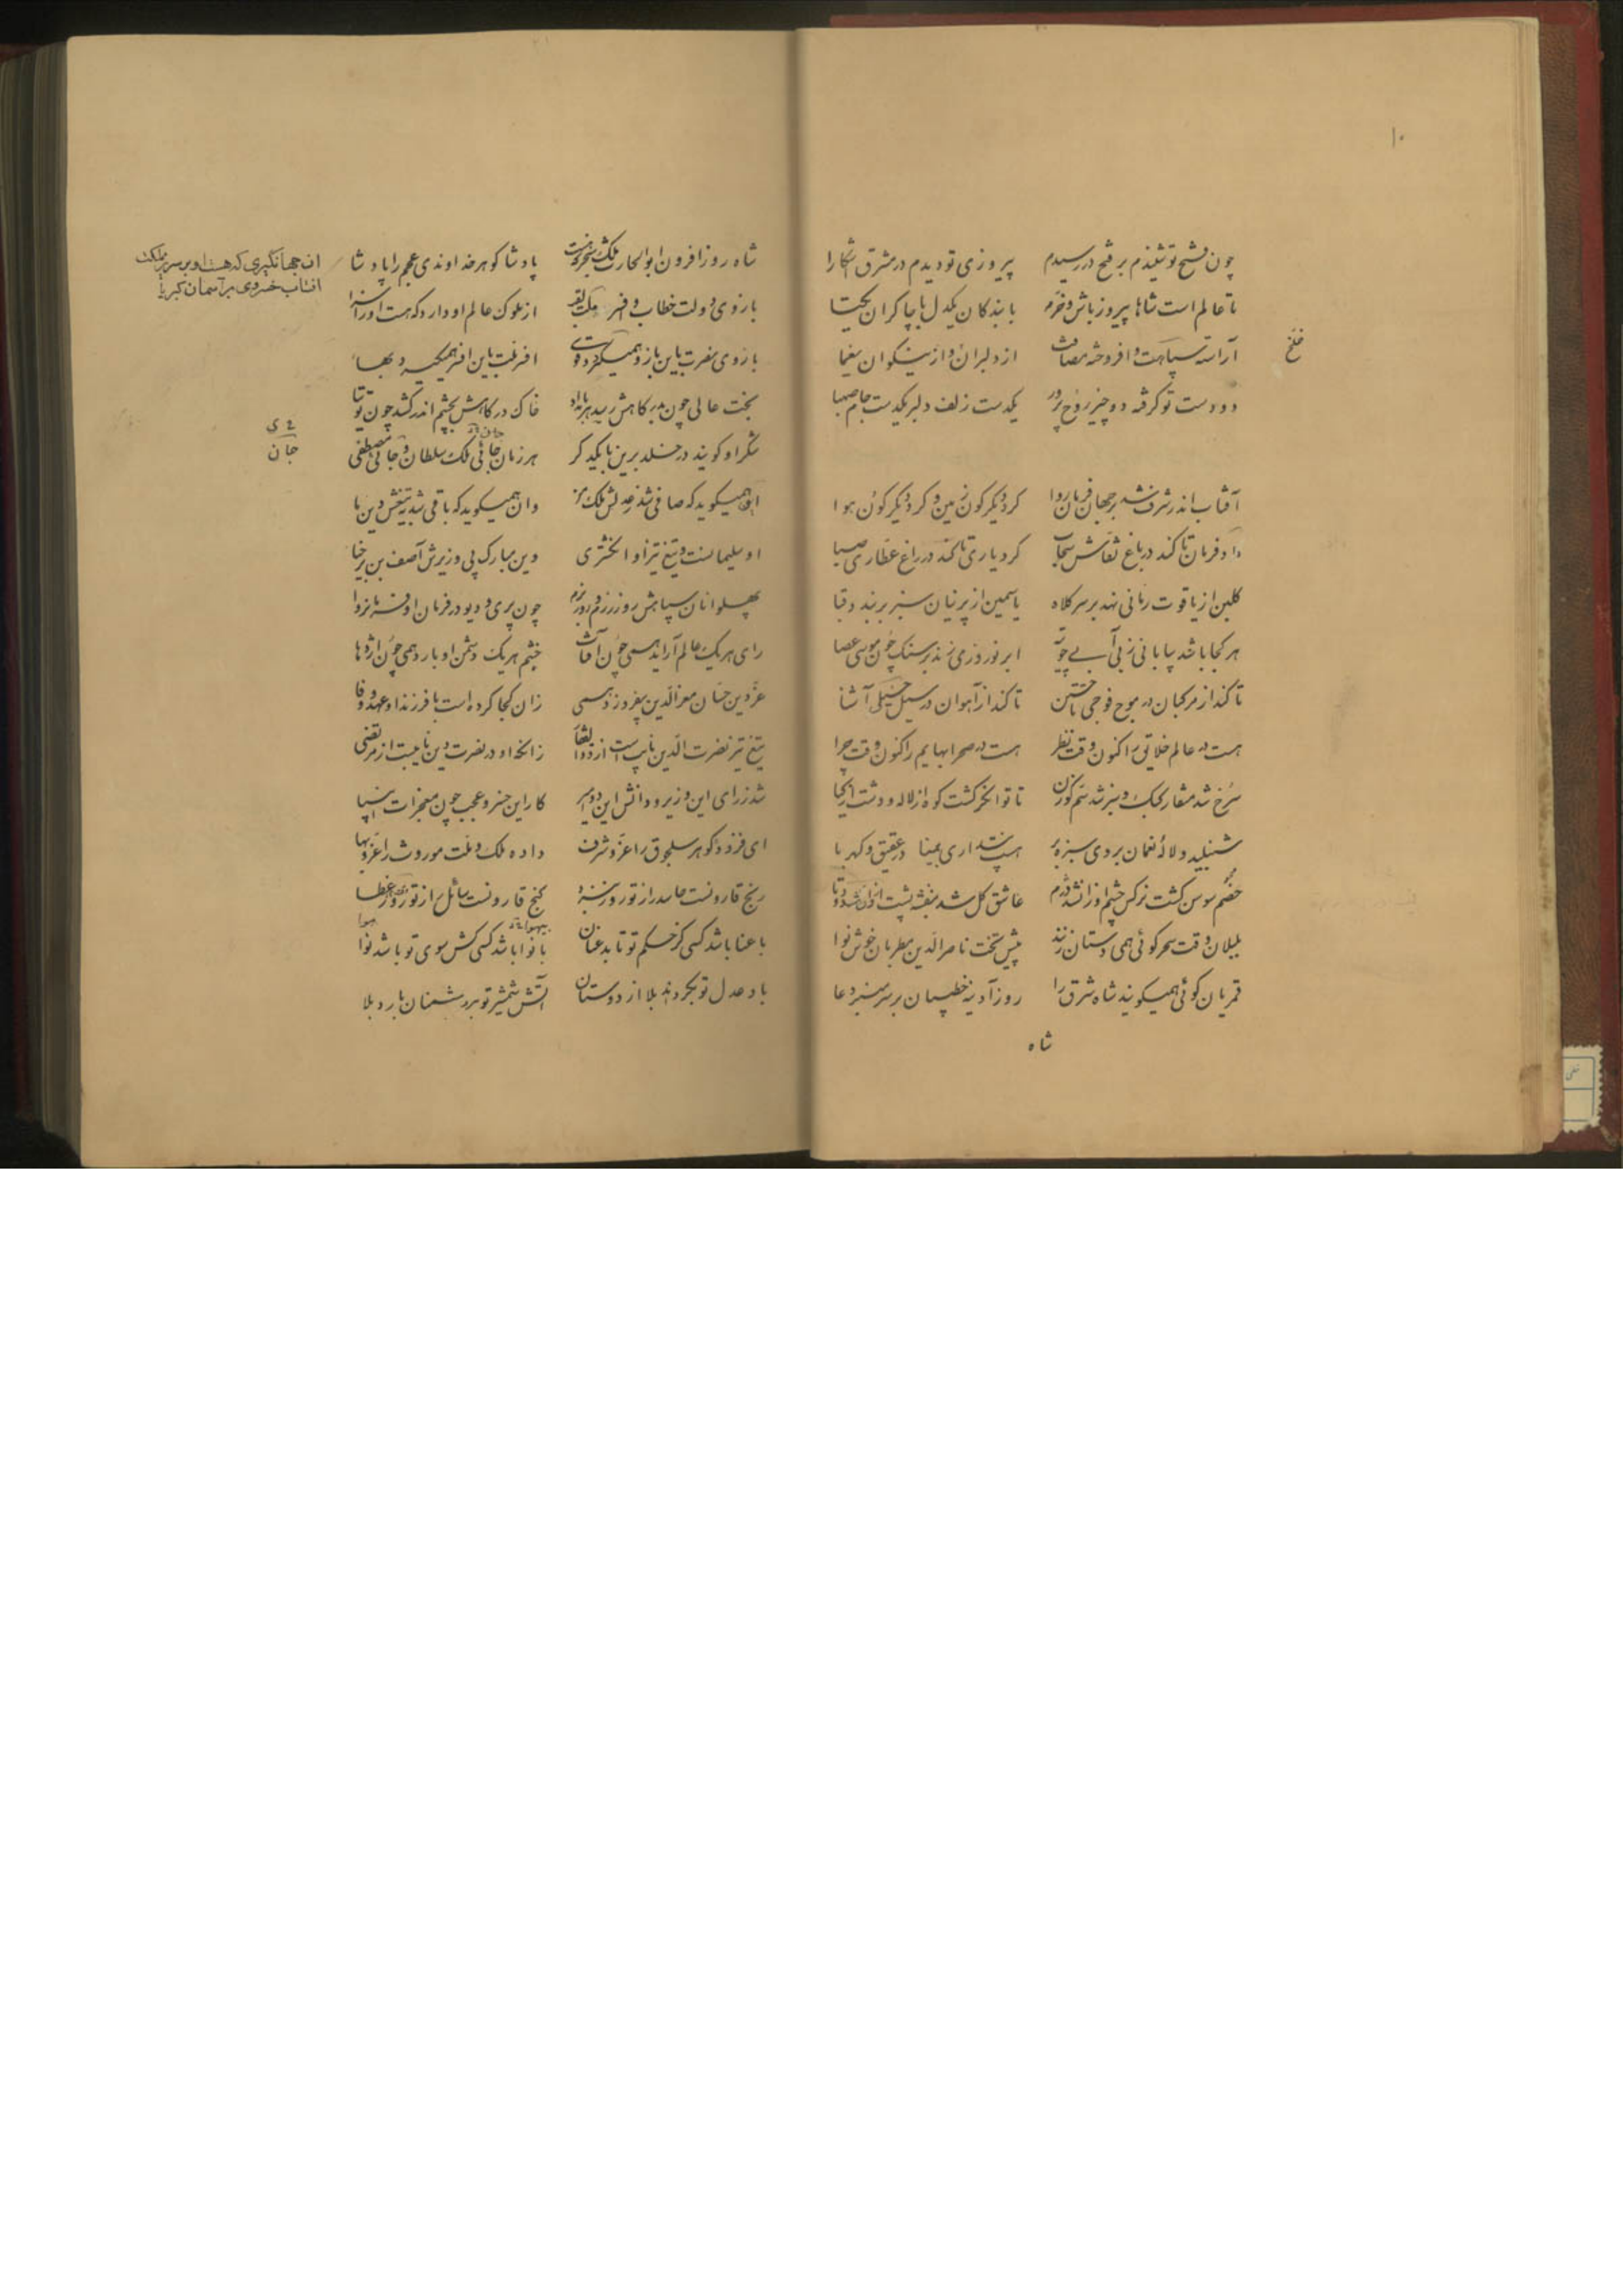 ۱۰
چون فتح تو شنیدم بر فتح در رسیدم پیروزی تو دیدم در مشرق آشکارا
تا عالم است شاها پیروز باش و خرم با بندگان یکدل با چاکران یکتا
آراسته سپاهت و افروخته مصافت از دلبران و از نیکوان یغما
خلخ
دو دست تو گرفته دو چیز روح پرور یکدست زلف دلبر یکدست جام صهبا
آفتاب اندر شرف شد بر جهان فرمان روا کرد دیگر گون زمین و کرد دیگر گون هوا
داد فرمان تا کند در باغ نقاشی سحاب کرد یاری تا کند در راغ عطاری صبا
گلبن از یاقوت رمانی نهد بر سر کلاه یاسمین از پرنیان سبز بربندد قبا
هر کجا باشد بیابانی ز بی آبی چو تیه ابر نوروزی زند بر سنگ چون موسی عصا
تا کند از مرجبان در موج فوجی تاختن تا کند از آهوان در سیل خیلی آشنا
هست در عالم خلایق را کنون وقت نظر هست در صحرا بهایم را کنون وقت چرا
سرخ شد منقار کبک و سبز شد سم گوزن تا توانگر گشت کوه از لاله و دشت از گیا
شنبلید و لاله نعمان بروی سبزه بر هست پنداری بمینا در عقیق و کهربا
خصم سوسن گشت نرگس چشم او زان شد دژم عاشق گل شد بنفشه پشت او زان شد دوتا
بلبلان وقت سحر گوئی همی دستان زنند پیش تخت ناصر الدین مطربان خوش نوا
قمریان گوئی همیگویند شاه شرق را روز آدینه خطیبان بر سر منبر دعا
شاه
شاه روز افزون ابوالحارث ملک سنجر که هست پادشا کو هر خداوندی عجم را پادشا
آن جهانگیری که هست او بر سریر مملکت
آفتاب خسروی بر آسمان کبریا
بازوی دولت خطاب و افسر ملت لقب از ملوک عالم او دارد که هست او را سزا
بازوی نصرت باین بازو همیگیرد قوی افسر ملت باین افسر همیگیرد بها
بخت عالی چون بدرگاهش رسید هر بامداد خاک درگاهش بچشم اندر کشد چون توتیا
شکر او گویند در خلد برین با یکدگر هر زمان جائی ملک سلطان و جائی مصطفی
جان
این همیگوید که صافی شد ز عدلش ملک من وان همیگوید که باقی شد بتیغش دین ما
او سلیمانست و تیغ تیز او انگشتری وین مبارک پی وزیرش آصف بن برخیا
پهلوانان سپاهش روز رزم و روز بزم چون پری و دیو در فرمان او فرمانروا
رای هر یک عالم آراید همی چون آفتاب خشم هر یک دشمن اوبارد همی چون اژدها
عز دین حسان معز الدین بیفروزد همی زان کجا کرده است با فرزند او عهد و وفا
تیغ تیز نصرت الدین نایب است از ذوالفقار زانکه او در نصرت دین نایبست از مرتضی
شد ز رای این وزیر و دانش این دو امیر کار این خسرو عجب چون معجزات انبیا
ای فزوده گوهر سلجوق را عز و شرف داده ملک و ملت موروث را عز و بها
رنج قارونست حاسد را ز تو روز نبرد گنج قارونست سائل را ز تو روز عطا
با عنا باشد کسی کز حکم تو تابد عنان با نوا باشد کسی کش سوی تو باشد هوا
باد عدل تو بگرداند بلا از دوستان آتش شمشیر تو بر دشمنان بارد بلا